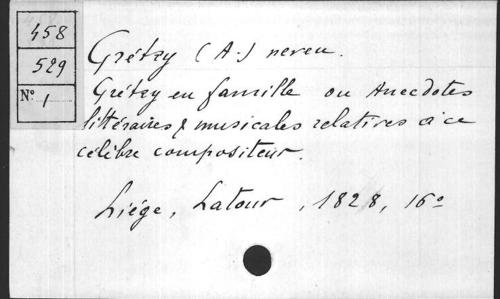 458
529
N° 1
Grétry (A.) neveu.
Grétry en famille ou Anecdotes
littéraires & musicales relatives à ce
célèbre compositeur.
Liége, Latour, 1828, 16°